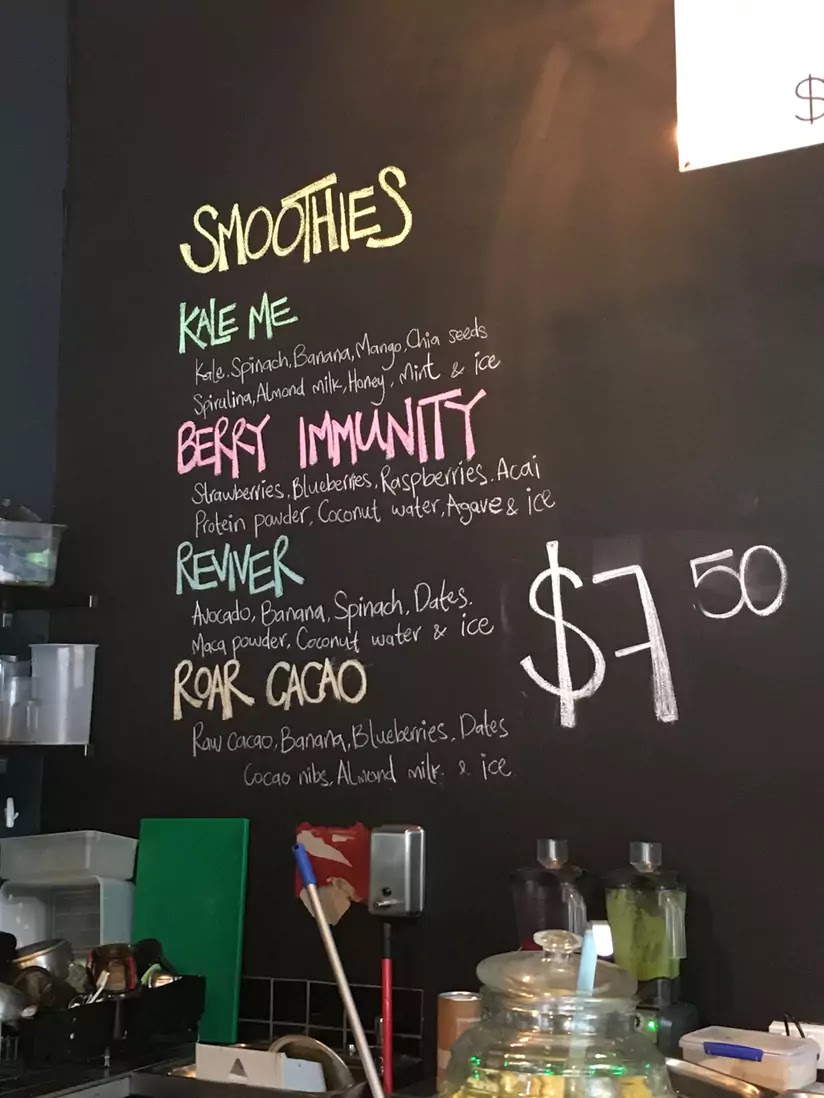 $
SMOOTHIES
KALE ME
Kale, Spinach, Banana, Mango, Chia seeds
Spirulina, Almond milk, Honey, Mint & ice
BERRY IMMUNITY
Strawberries, Blueberries, Raspberries, Acai
Protein powder, Coconut water, Agave & ice
REVIVER
Avocado, Banana, Spinach, Dates.
Maca powder, Coconut water & ice
$7 50
ROAR CACAO
Raw cacao, Banana, Blueberries, Dates
Cacao nibs, Almond milk & ice